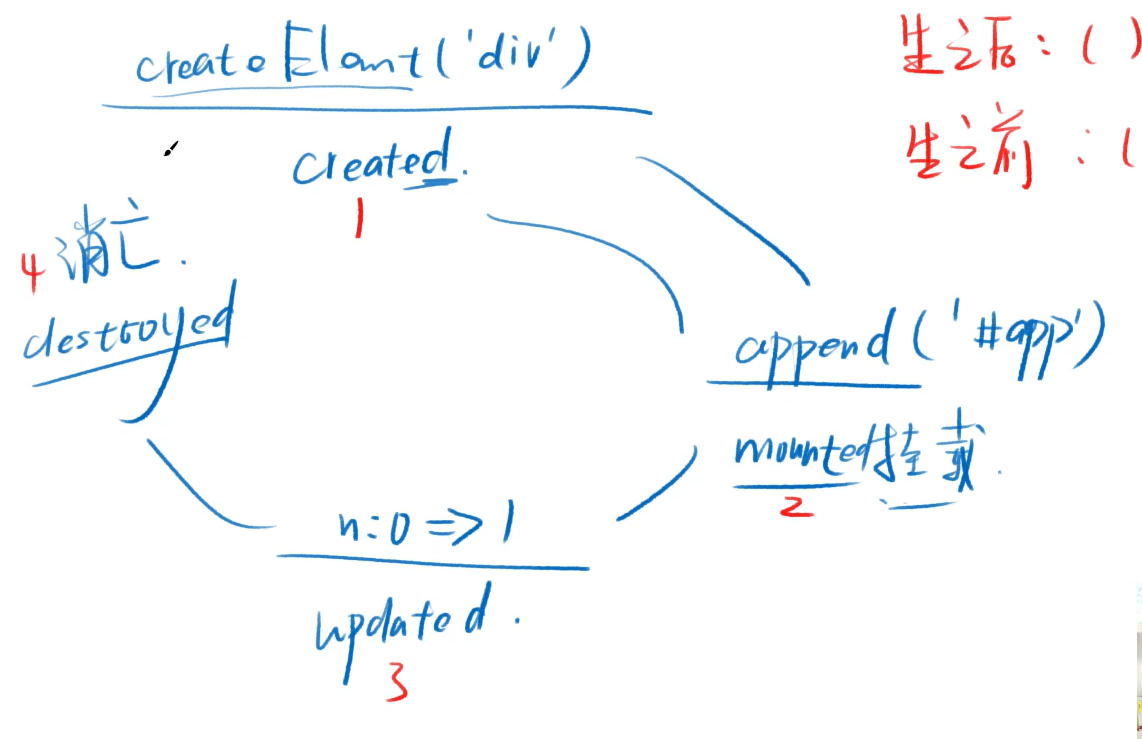 createElemt('div')
created.
1
生之后：( )
生之前：(
4 消亡.
destroyed
append('#app')
mounted挂载.
2
n:0 => 1
updated.
3